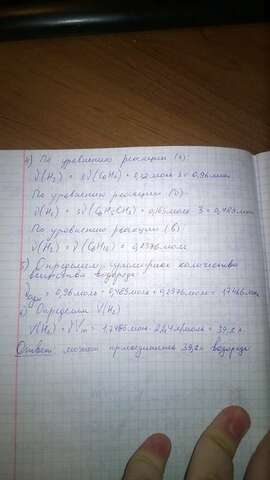 4) По уравнению реакции (а):
ν(H₂) = 3ν(C₆H₆) = 0,32 моль · 3 = 0,96 моль
По уравнению реакции (б):
ν(H₂) = 3ν(C₆H₅CH₃) = 0,165 моль · 3 = 0,495 моль
По уравнению реакции (в)
ν(H₂) = ν(C₆H₁₀) = 0,2976 моль
5) Определим суммарное количество
вещества водорода:
= 0,96 моль + 0,495 моль + 0,2976 моль =
6) Определим V(H₂)
V(H₂) = ν·Vm = моль · 22,4 л/моль = 39,2 л
Ответ: может присоединить 39,2л водорода